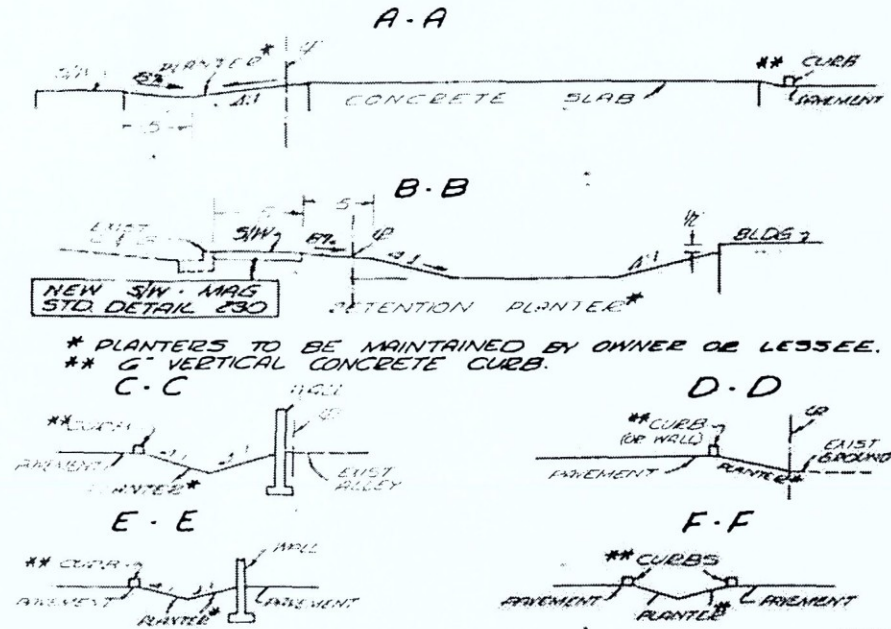 A-A
S/W
8%
PLANTER*
4:1
5
CONCRETE SLAB
** CURB
PAVEMENT
B-B
5
5
EXIST
S/W
8%
4:1
4:1
BLDG
NEW S/W - MAG
STD. DETAIL 230
RETENTION PLANTER*
* PLANTERS TO BE MAINTAINED BY OWNER OR LESSEE.
** 6" VERTICAL CONCRETE CURB.
C-C
WALL
**CURB
4:1
PAVEMENT
PLANTER*
EXIST
ALLEY
D-D
**CURB
(OR WALL)
EXIST
GROUND
PAVEMENT
PLANTER*
E-E
WALL
** CURB
PAVEMENT
PLANTER*
PAVEMENT
F-F
** CURBS
PAVEMENT
PLANTER*
PAVEMENT